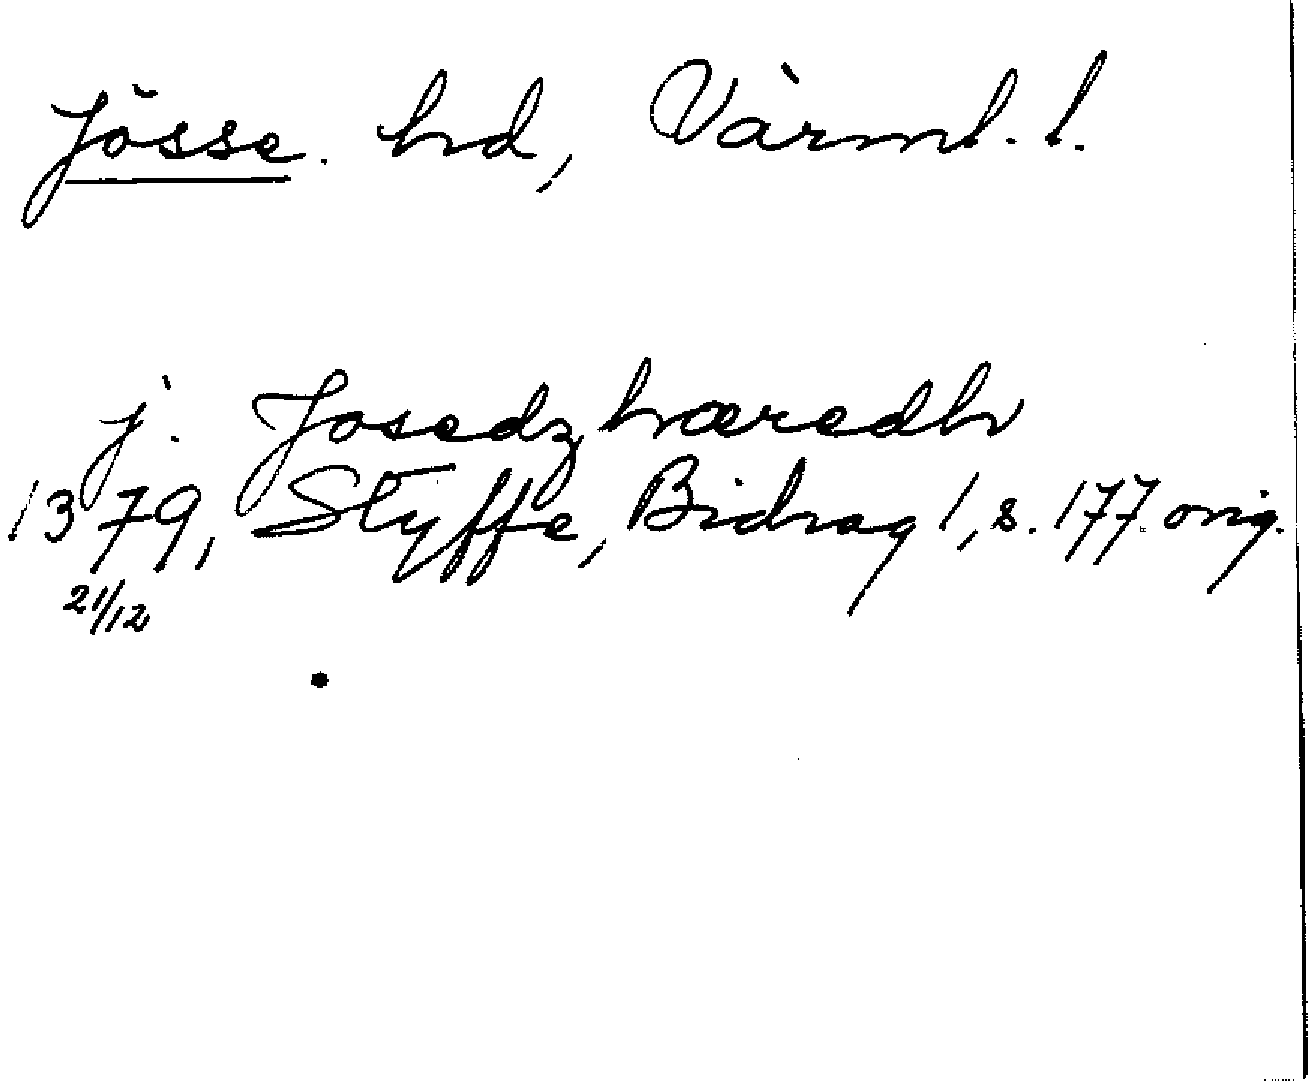 Jösse. hd, Värml. l.
j. Josedzhæredh
1379, Styffe, Bidrag 1, s. 177 orig.
21/12